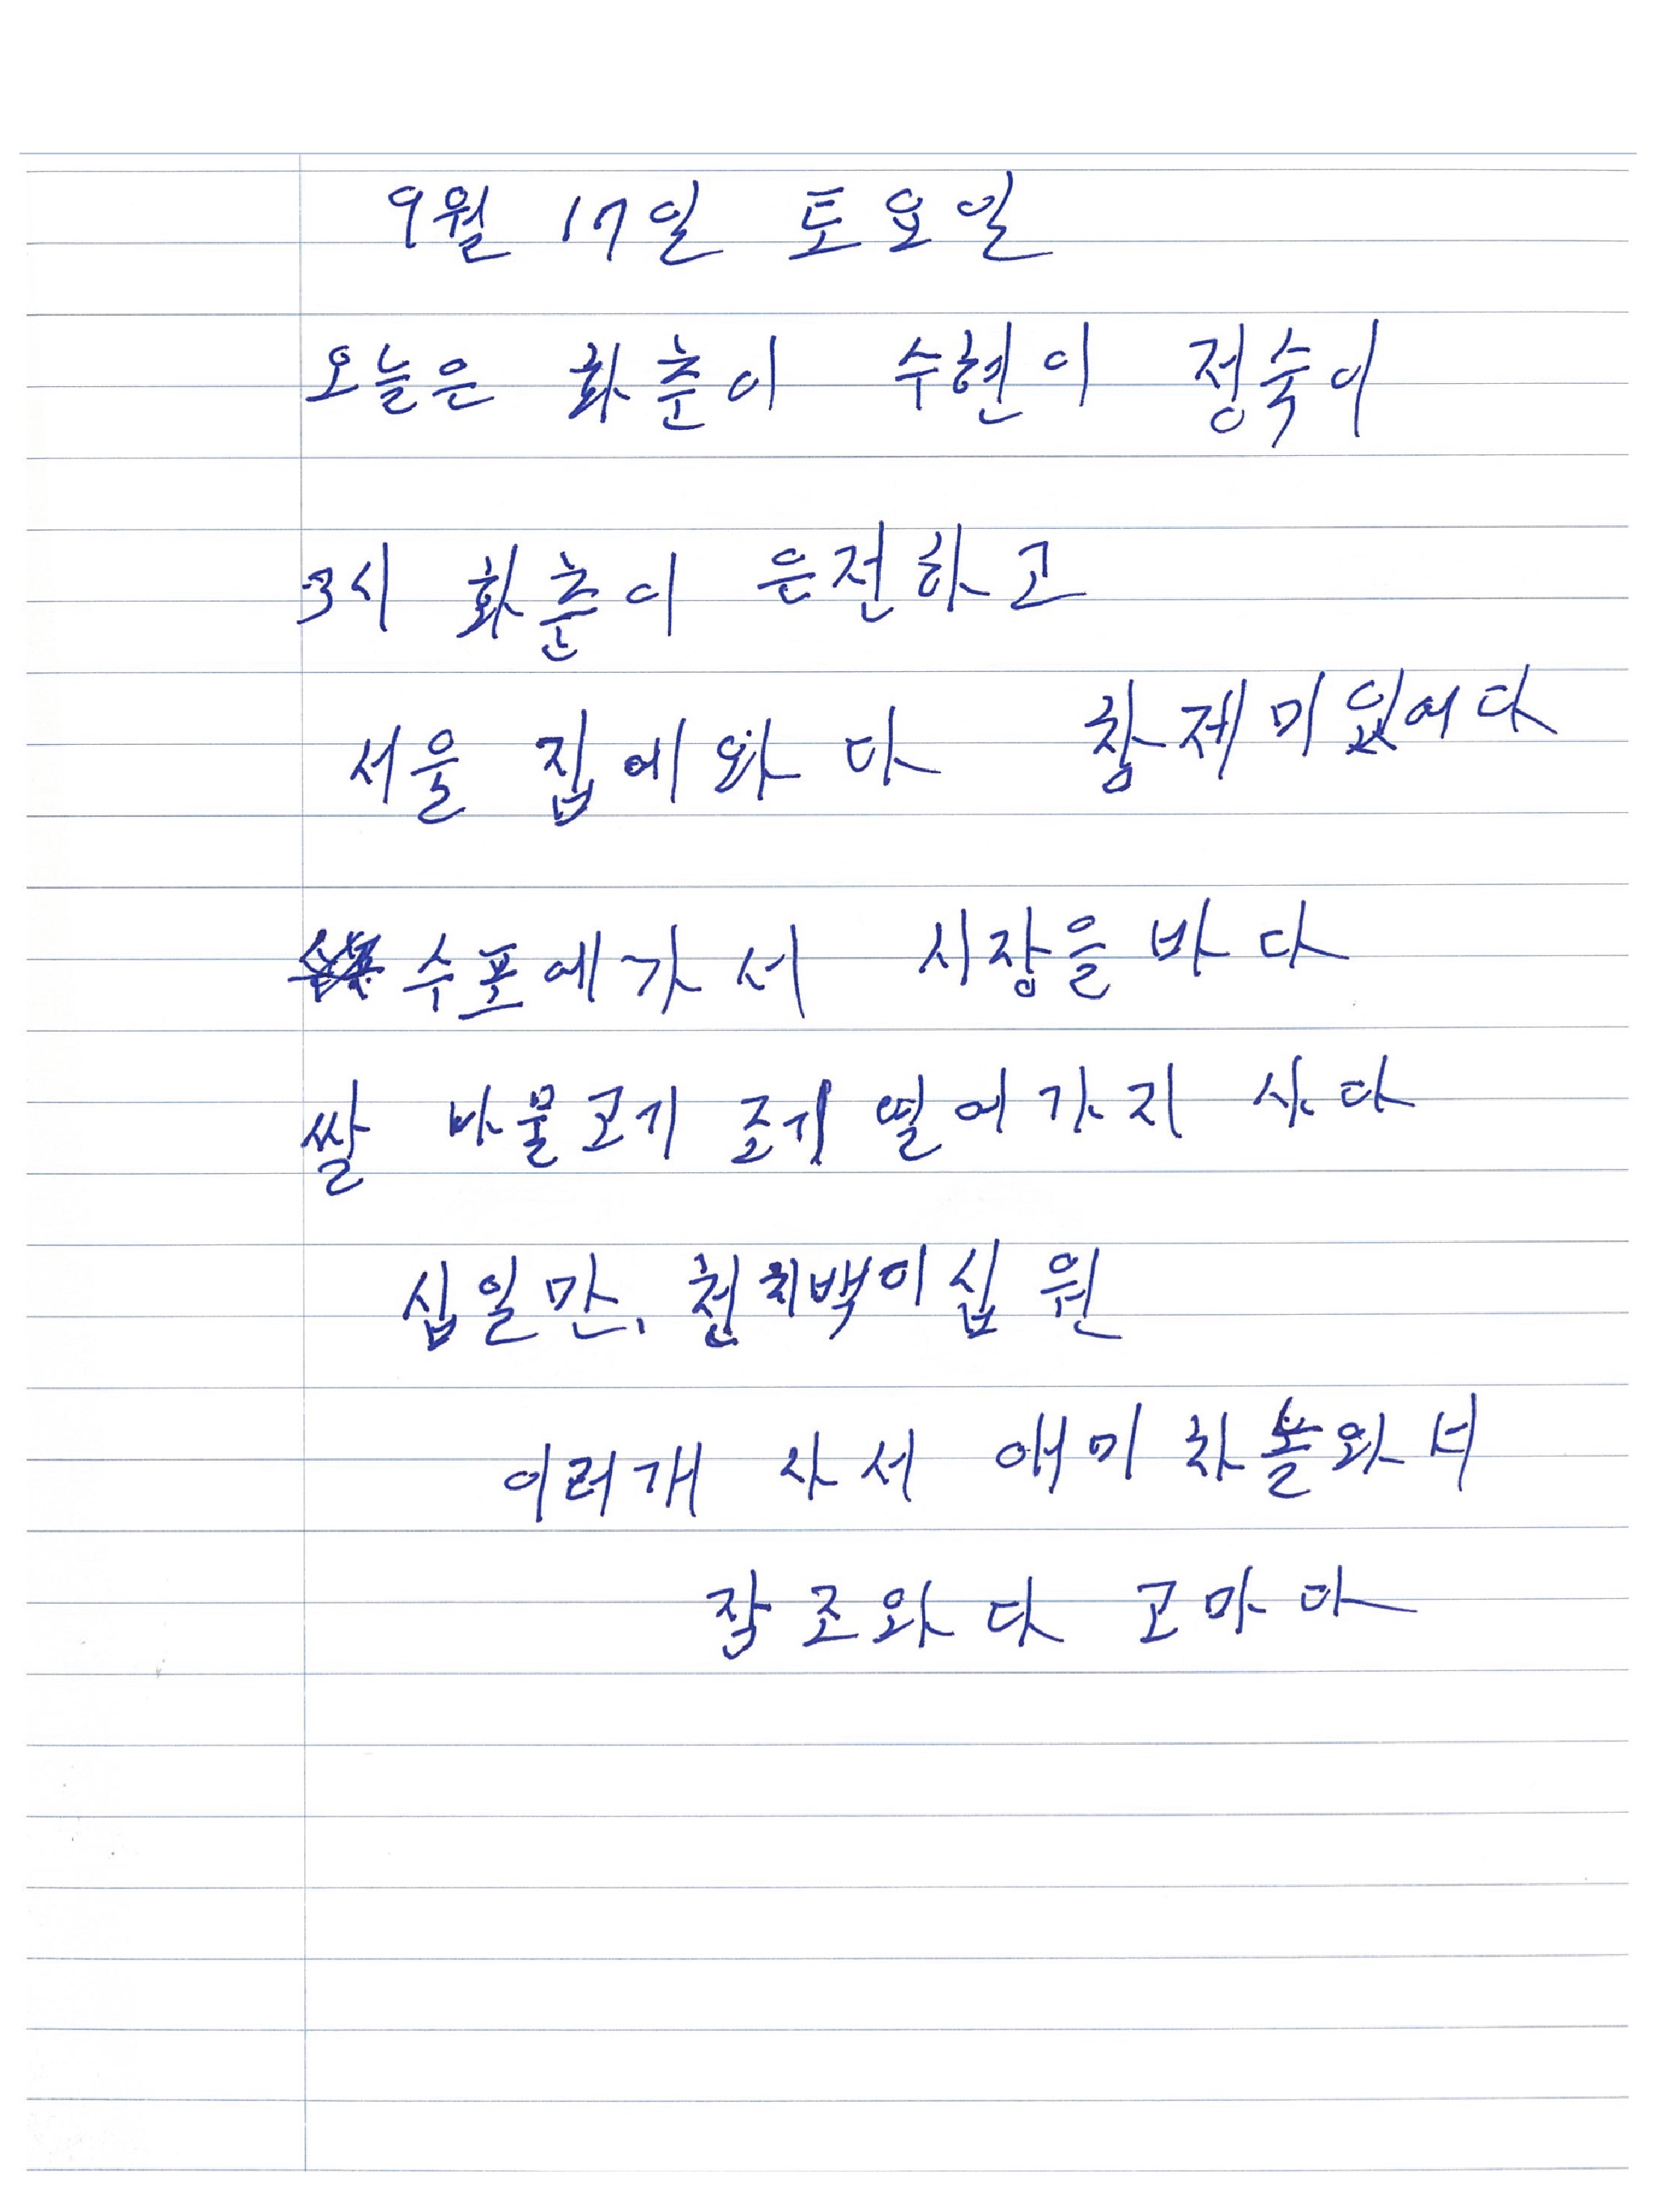 9월 17일 토요일
오늘은 화춘이 수현이 정숙이
3시 화춘이 은전하고
서울 집에와다 참제미있어다
수포에가서 시장을바다
쌀 바물고기 조기 열어가지 사다
십일만, 천치백이십원
이러개 사서 애미차놀와서
잘조와다 고마아